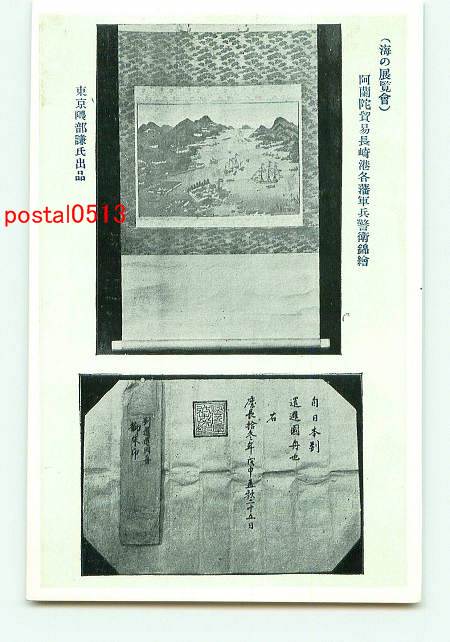 (海の展覽會)
阿蘭陀貿易長崎港各藩軍兵警衛錦繪
東京磯部謙氏出品
postal0513
自日本到
暹邏國舟也
右
慶長拾叁年戊申孟秋二十五日
御朱印